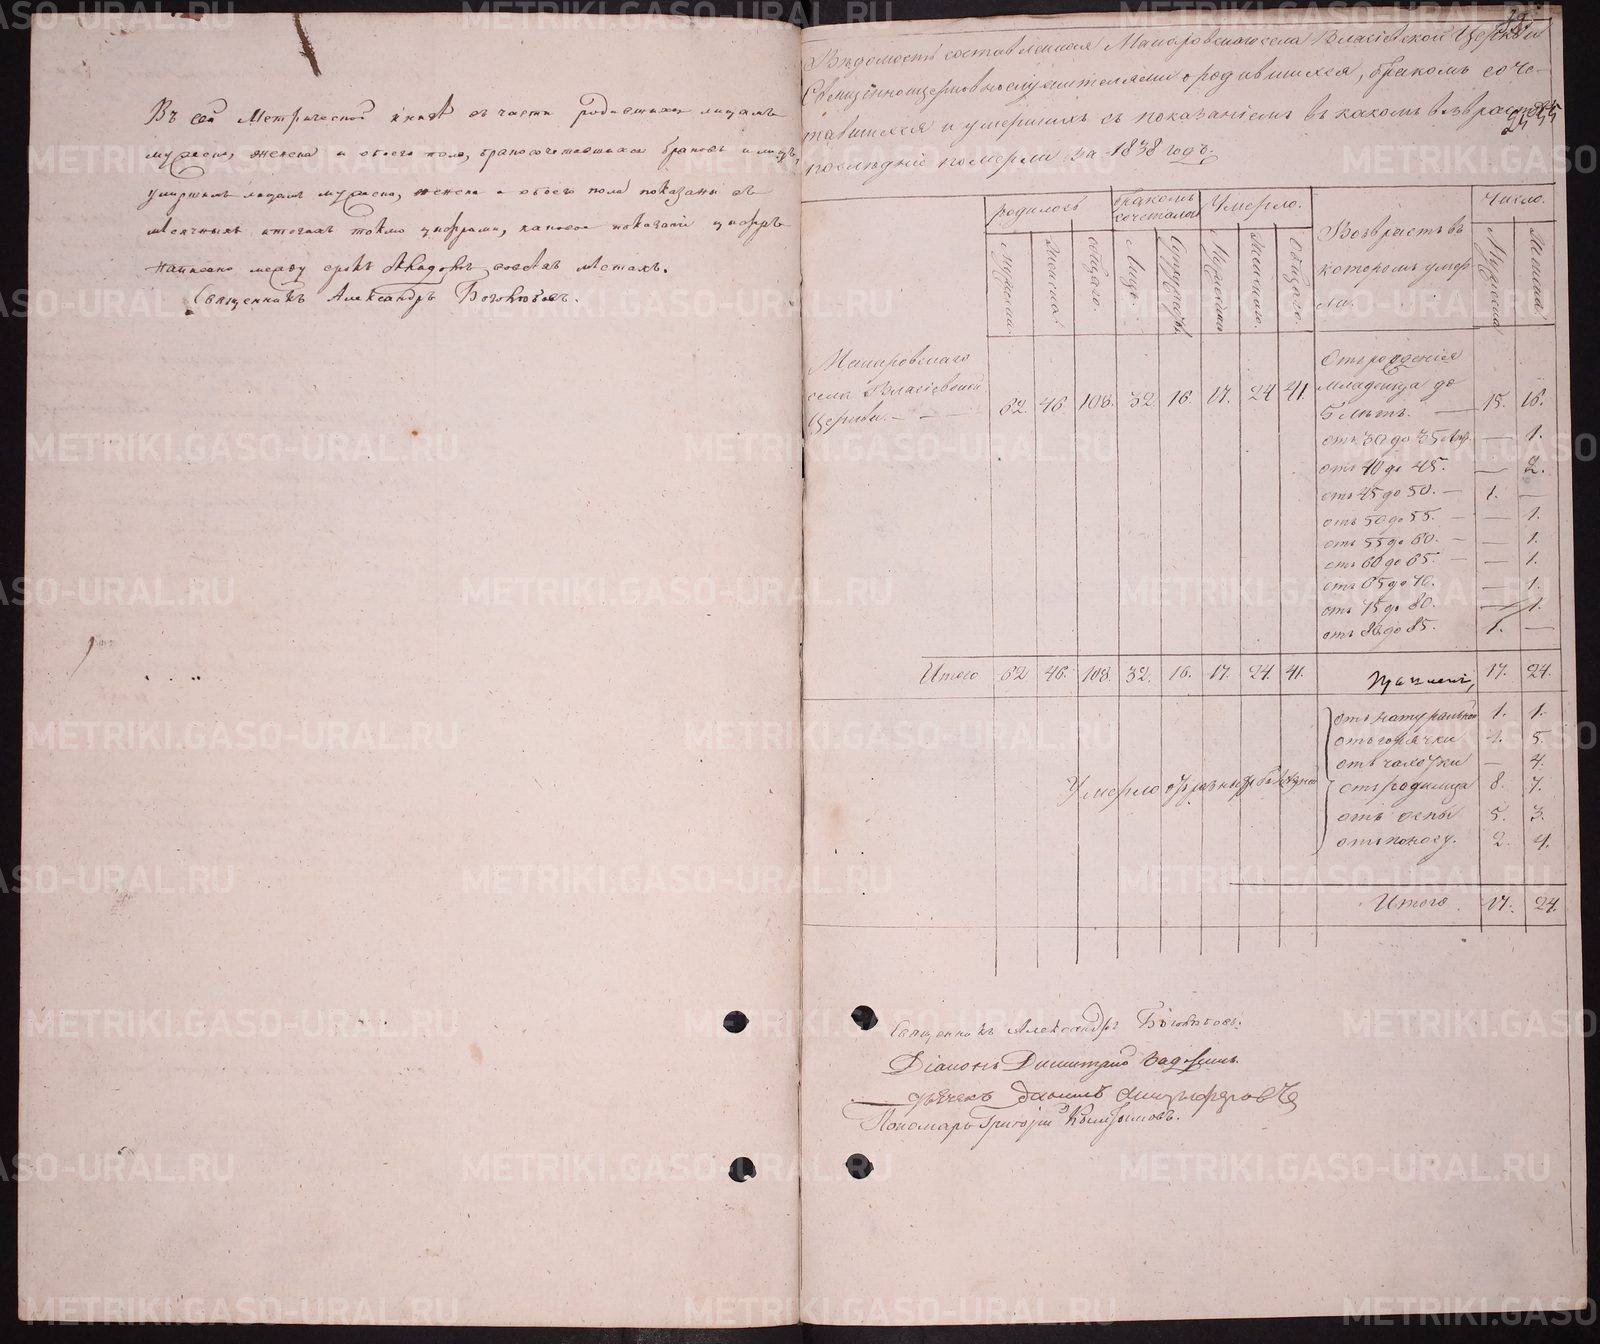 Въ сей Метрической книгѣ въ части родившихся лицамъ
мужеска, женска и обоего пола, бракосочетавшихся браковъ и лицъ,
умершимъ лицамъ мужеска, женска и обоего пола показаны въ
мѣсячныхъ итогахъ токмо цыфрами, каковое показаніе цыфръ
написано между срокъ въ своихъ мѣстахъ.
Священникъ Александръ Боголюбовъ.
Вѣдомость составленная Макаровскаго села Власіевской Церкви
Священноцерковнослужителями о родившихся, бракомъ соче-
тавшихся и умершихъ съ показаніемъ въ какомъ возрастѣ
послѣдніе померли за 1838 годъ.
родилось
бракомъ сочеталось
Умерло.
Возрастъ въ которомъ умер-
ли.
Число.
Мужска.
Женска.
общаго.
Лицъ.
Супружествъ
Мужеска
Женскаго.
Общаго.
Мужеска
Женска
Макаровскаго
села Власіевской
Церкви. — —
62. 46. 108. 32. 16. 17. 24 41.
Отъ рожденія
младенца до
5 лѣтъ. — 15. 16.
отъ 30 до 35 — 1.
отъ 40 до 45. — 2.
отъ 45 до 50. — 1. —
отъ 50 до 55. — — 1.
отъ 55 до 60. — — 1.
отъ 60 до 65. — — 1.
отъ 65 до 70. — 1.
отъ 75 до 80. — 1.
отъ 80 до 85. 1. —
Итого 62 46. 108. 32. 16. 17. 24. 41. 17. 24.
Умерло отъ разныхъ болѣзней
отъ натуральной 1. 1.
отъ горячки 1. 5.
отъ чахотки — 4.
отъ родимца 8. 7.
отъ оспы 5. 3.
отъ поносу. 2. 4.
Итого 17. 24.
Священникъ Александръ Боголюбовъ.
Діаконъ Димитрій
дьячекъ Данилъ
Пономарь Григорій
METRIKI.GASO-URAL.RU